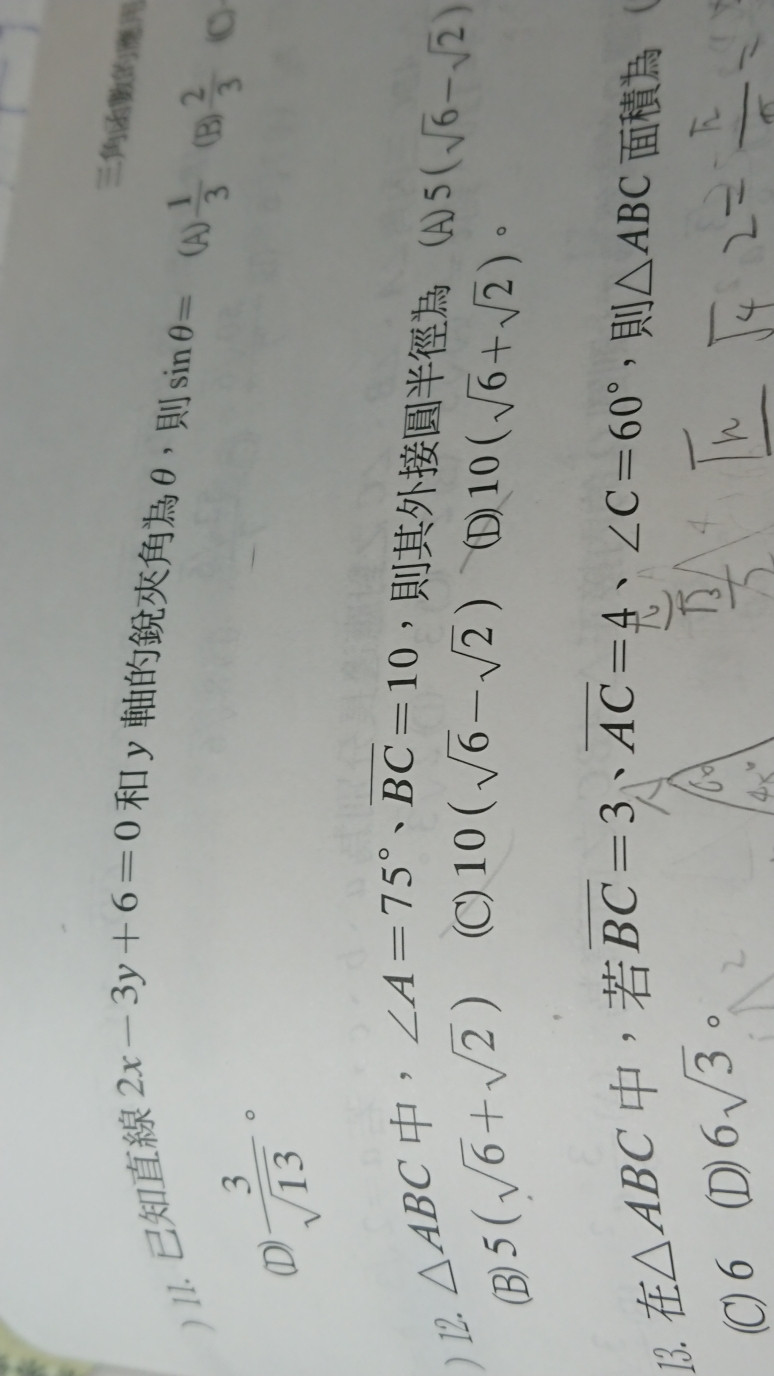 三角函數的應用
) 11. 已知直線 2x－3y＋6＝0 和 y 軸的銳夾角為 θ，則 sin θ＝ (A) 1/3 (B) 2/3 (C)
(D) 3/√13 。
) 12. △ABC 中，∠A＝75°、BC＝10，則其外接圓半徑為 (A) 5(√6－√2)
(B) 5(√6＋√2) (C) 10(√6－√2) (D) 10(√6＋√2)。
13. 在△ABC 中，若 BC＝3、AC＝4、∠C＝60°，則△ABC 面積為 (
(C) 6 (D) 6√3 。